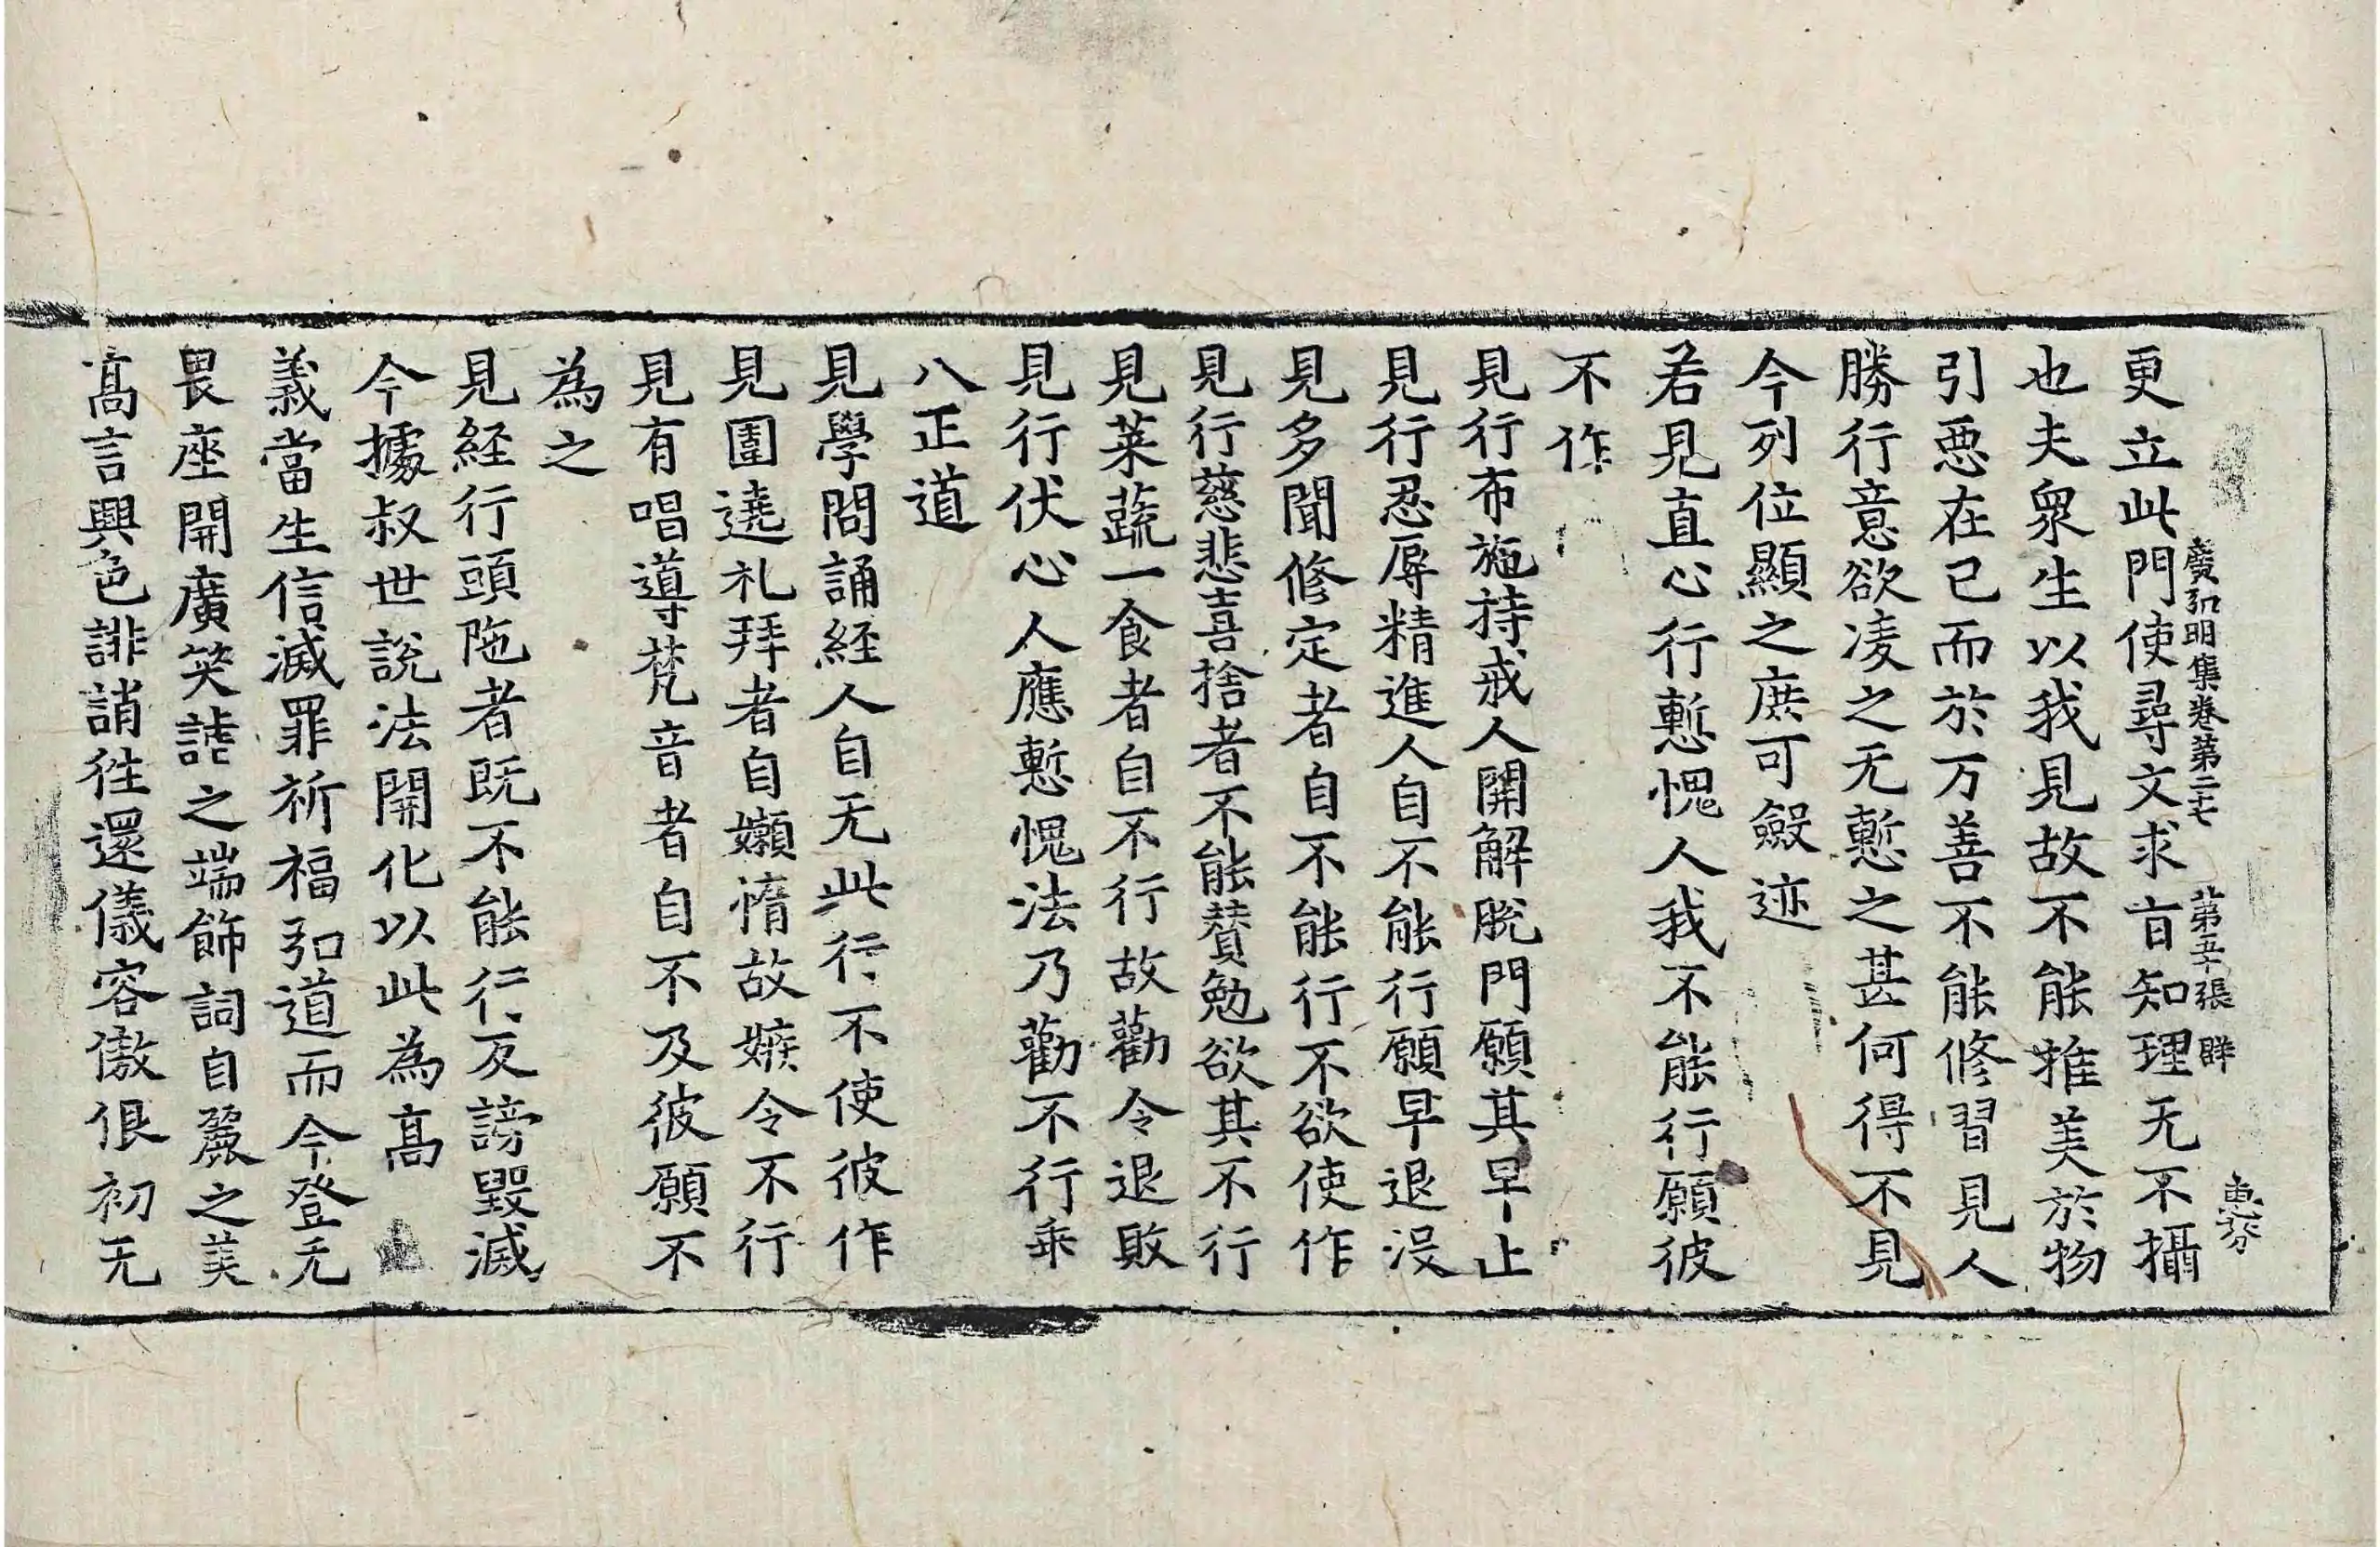 廣弘明集卷第二十七 第五十張 群
惠芬
更立此門使尋文求旨知理无不攝
也夫衆生以我見故不能推美於物
引惡在己而於万善不能修習見人
勝行意欲凌之无慙之甚何得不見
今列位顯之庶可斂迹
若見直心行慙愧人我不能行願彼
不作
見行布施持戒人開解脫門願其早止
見行忍辱精進人自不能行願早退沒
見多聞修定者自不能行不欲使作
見行慈悲喜捨者不能賛勉欲其不行
見菜蔬一食者自不行故勸令退敗
見行伏心人應慙愧法乃勸不行乖
八正道
見學問誦経人自无此行不使彼作
見圍遶礼拜者自嬾惰故嫉令不行
見有唱導梵音者自不及彼願不
為之
見経行頭陁者既不能行反謗毀滅
今據叔世說法開化以此為髙
義當生信滅罪祈福弘道而今登无
畏座開廣笑謔之端飾詞自麗之美
髙言興色誹誚往還儀容傲佷初无